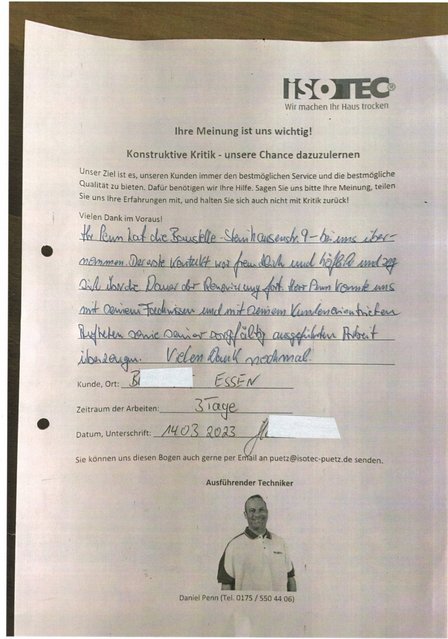 ISOTEC®
Wir machen Ihr Haus trocken
Ihre Meinung ist uns wichtig!
Konstruktive Kritik - unsere Chance dazuzulernen
Unser Ziel ist es, unseren Kunden immer den bestmöglichen Service und die bestmögliche
Qualität zu bieten. Dafür benötigen wir Ihre Hilfe. Sagen Sie uns bitte Ihre Meinung, teilen
Sie uns Ihre Erfahrungen mit, und halten Sie sich auch nicht mit Kritik zurück!
Vielen Dank im Voraus!
Hr Penn hat die Baustelle - Steinhausenstr. 9 - bei uns über-
nommen. Der erste Kontakt war freundlich und höflich und zog
sich über die Dauer der Renovierung fort. Herr Penn konnte uns
mit seinem Fachwissen und mit seinem Kundenorientierten
Auftreten sowie seiner sorgfältig ausgeführten Arbeit
überzeugen. Vielen Dank nochmal.
Kunde, Ort: B ESSEN
Zeitraum der Arbeiten: 3 Tage
Datum, Unterschrift: 14.03.2023
Sie können uns diesen Bogen auch gerne per Email an puetz@isotec-puetz.de senden.
Ausführender Techniker
Daniel Penn (Tel. 0175 / 550 44 06)